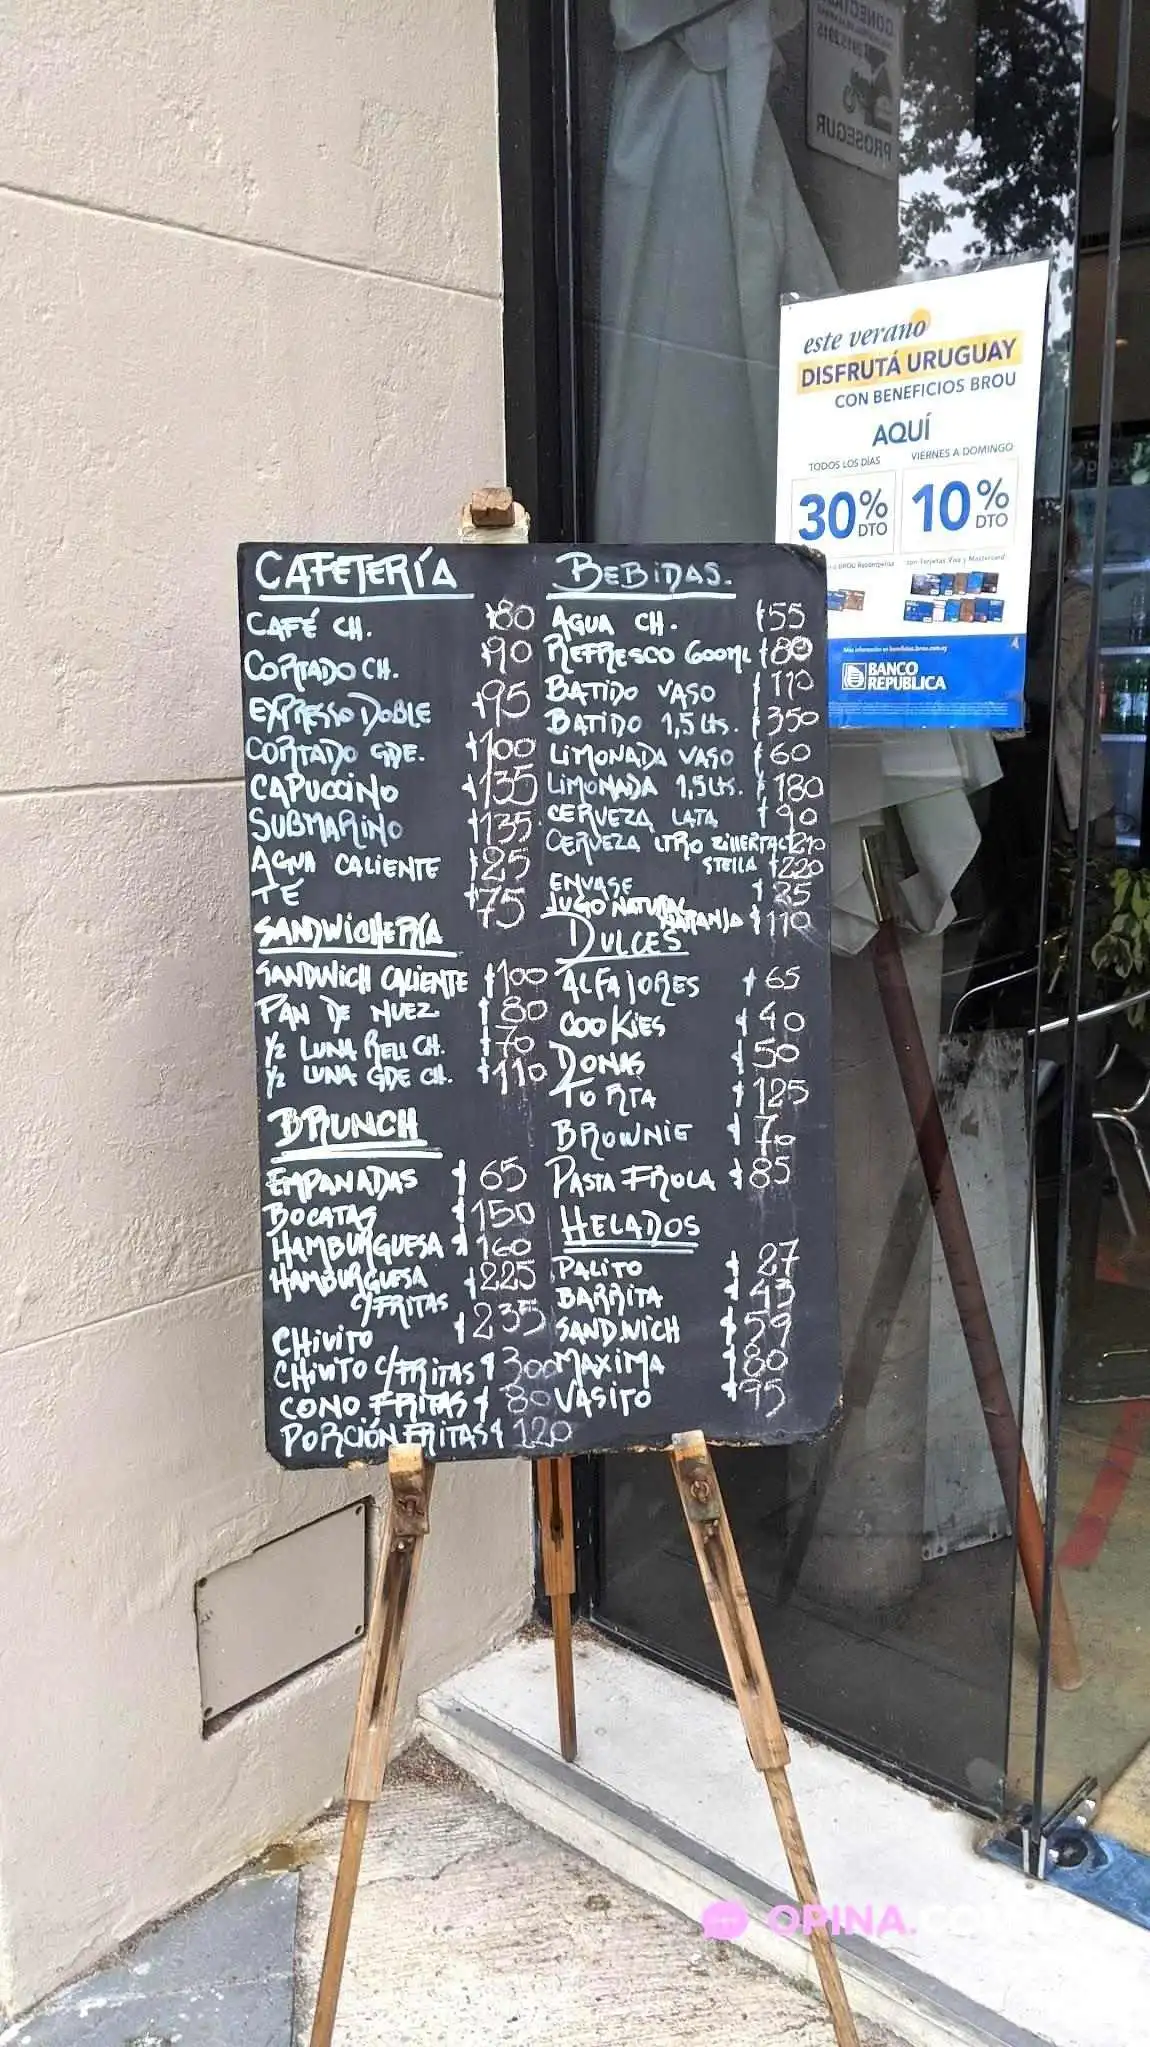 CONECTADO
PROSEGUR
este verano
DISFRUTÁ URUGUAY
CON BENEFICIOS BROU
AQUÍ
TODOS LOS DÍAS
30% DTO
BROU Recompensa
VIERNES A DOMINGO
10% DTO
con Tarjetas Visa y Mastercard
Más información en beneficios.brou.com.uy
BANCO
REPUBLICA
CAFETERÍA
CAFÉ CH. $80
CORTADO CH. $90
EXPRESSO DOBLE $95
CORTADO GDE. $100
CAPUCCINO $135
SUBMARINO $135
AGUA CALIENTE $25
TÉ $75
SANDWICHERIA
SANDWICH CALIENTE $100
PAN DE NUEZ $80
1/2 LUNA RELL CH. $70
1/2 LUNA GDE CH. $110
BRUNCH
EMPANADAS $65
BOCATAS $150
HAMBURGUESA $160
HAMBURGUESA $225
C/FRITAS
CHIVITO $235
CHIVITO C/FRITAS $300
CONO FRITAS $80
PORCIÓN FRITAS $120
BEBIDAS.
AGUA CH. $55
REFRESCO 600ML $80
BATIDO VASO $110
BATIDO 1,5 Lts. $350
LIMONADA VASO $60
LIMONADA 1,5 Lts. $180
CERVEZA LATA $90
CERVEZA LTRO ZILLERTAL $210
STELLA $220
ENVASE $25
JUGO NATURAL
NARANJA $110
DULCES
ALFAJORES $65
COOKIES $40
DONAS $50
TORTA $125
BROWNIE $70
PASTA FROLA $85
HELADOS
PALITO $27
BARRITA $43
SANDWICH $59
MAXIMA $80
VASITO $95
OPINA.